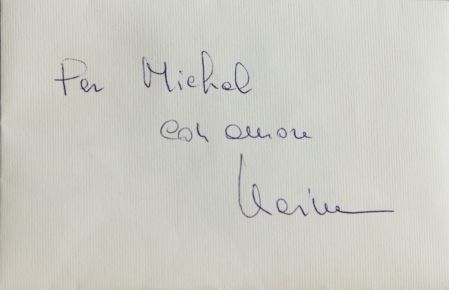 Per Michel
con amore